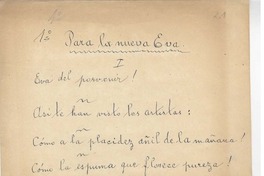 1º
1º Para la nueva Eva.
I
Eva del porvenir!
Así te han visto los artistas:
Cómo a la placidez añil de la mañana!
Cómo la espuma que florece pureza!